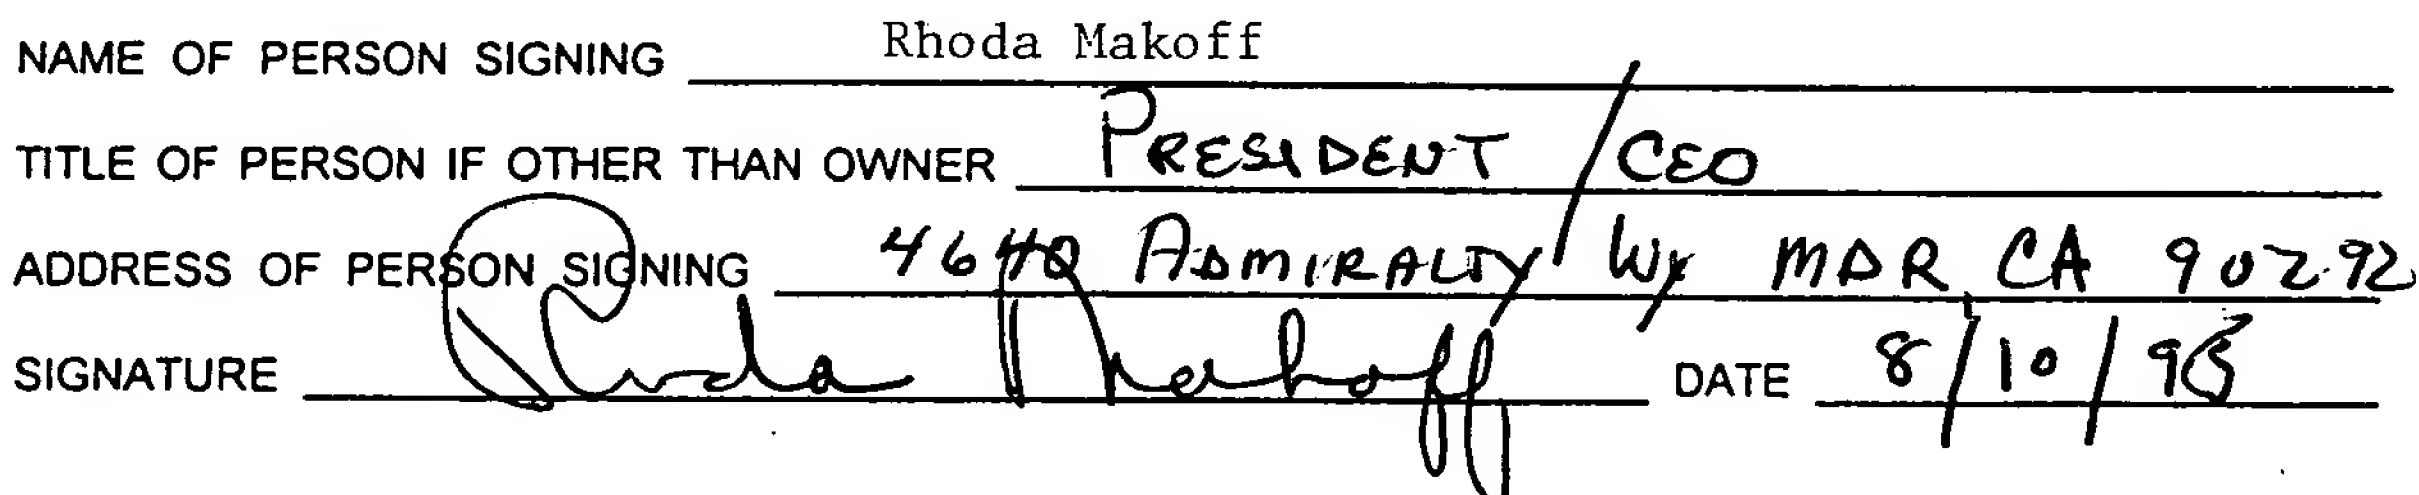 NAME OF PERSON SIGNING Rhoda Makoff
TITLE OF PERSON IF OTHER THAN OWNER PRESIDENT / CEO
ADDRESS OF PERSON SIGNING 4640 ADMIRALTY WY MDR, CA 90292
SIGNATURE Rhoda Makoff DATE 8/10/95